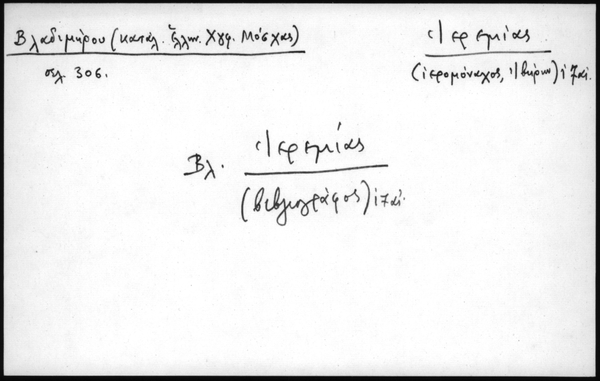 Βλαδιμήρου (κατάλ. Ἑλλην. Χγφ. Μόσχας)
σελ. 306.
Ἱερεμίας
(ἱερομόναχος, Ἰβήρων) ιζ αἰ.
Βλ. Ἱερεμίας
(βιβλιογράφος) ιζ αἰ.